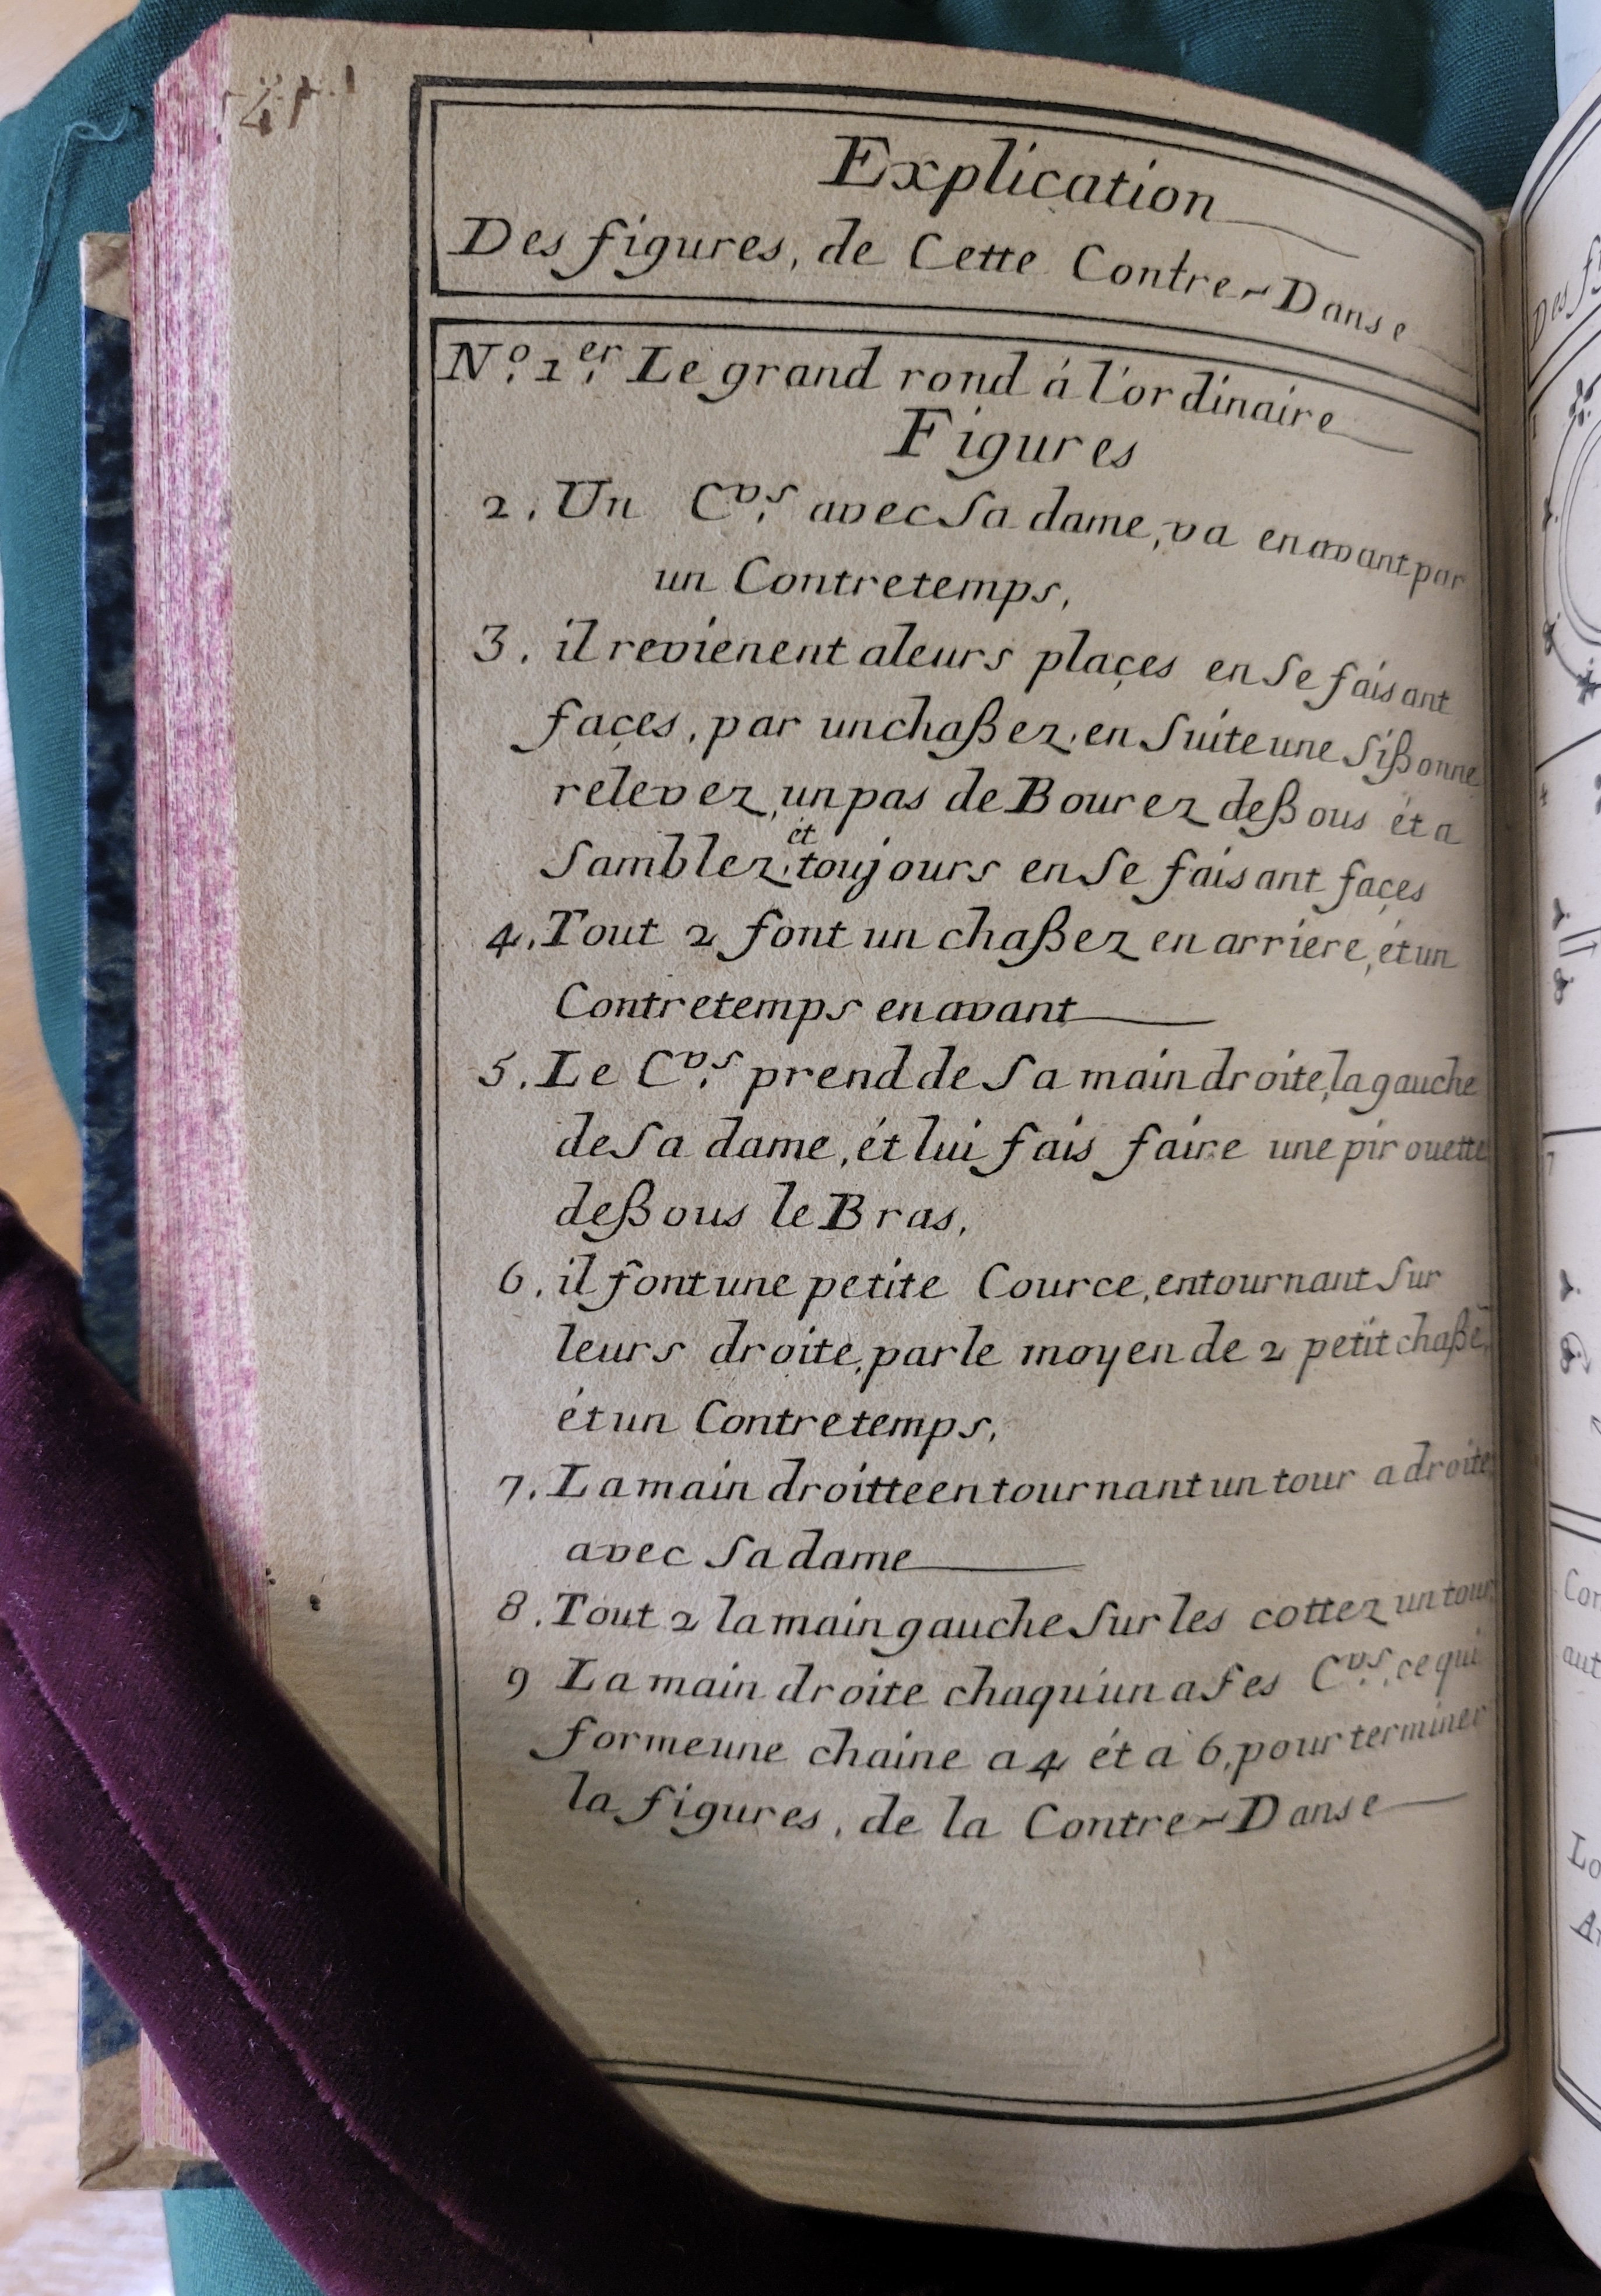 Explication
Des figures, de Cette Contre-Danse
N.º 1.er Le grand rond á l'ordinaire
Figures
2. Un C.vs avec Sa dame, va en avant par
un Contretemps,
3. il revienent a leurs plaçes en Se faisant
façes, par un chaßez, en Suite une Sißonne
relevez, un pas de Bourez deßous ét a
Samblez, ét toujours en Se faisant façes
4. Tout 2 font un chaßez en arriere, ét un
Contretemps en avant
5. Le C.vs prend de Sa main droite, la gauche
de Sa dame, ét lui fais faire une pirouette
deßous le Bras,
6. il font une petite Cource, en tournant Sur
leurs droite, par le moyen de 2 petit chaßé,
ét un Contretemps,
7. La main droitte en tournant un tour a droite,
avec Sa dame
8. Tout 2 la main gauche Sur les cottez un tour,
9 La main droite chaqu'un a Ses C.vs, ce qui
forme une chaine a 4 ét a 6, pour terminer
la figures, de la Contre-Danse